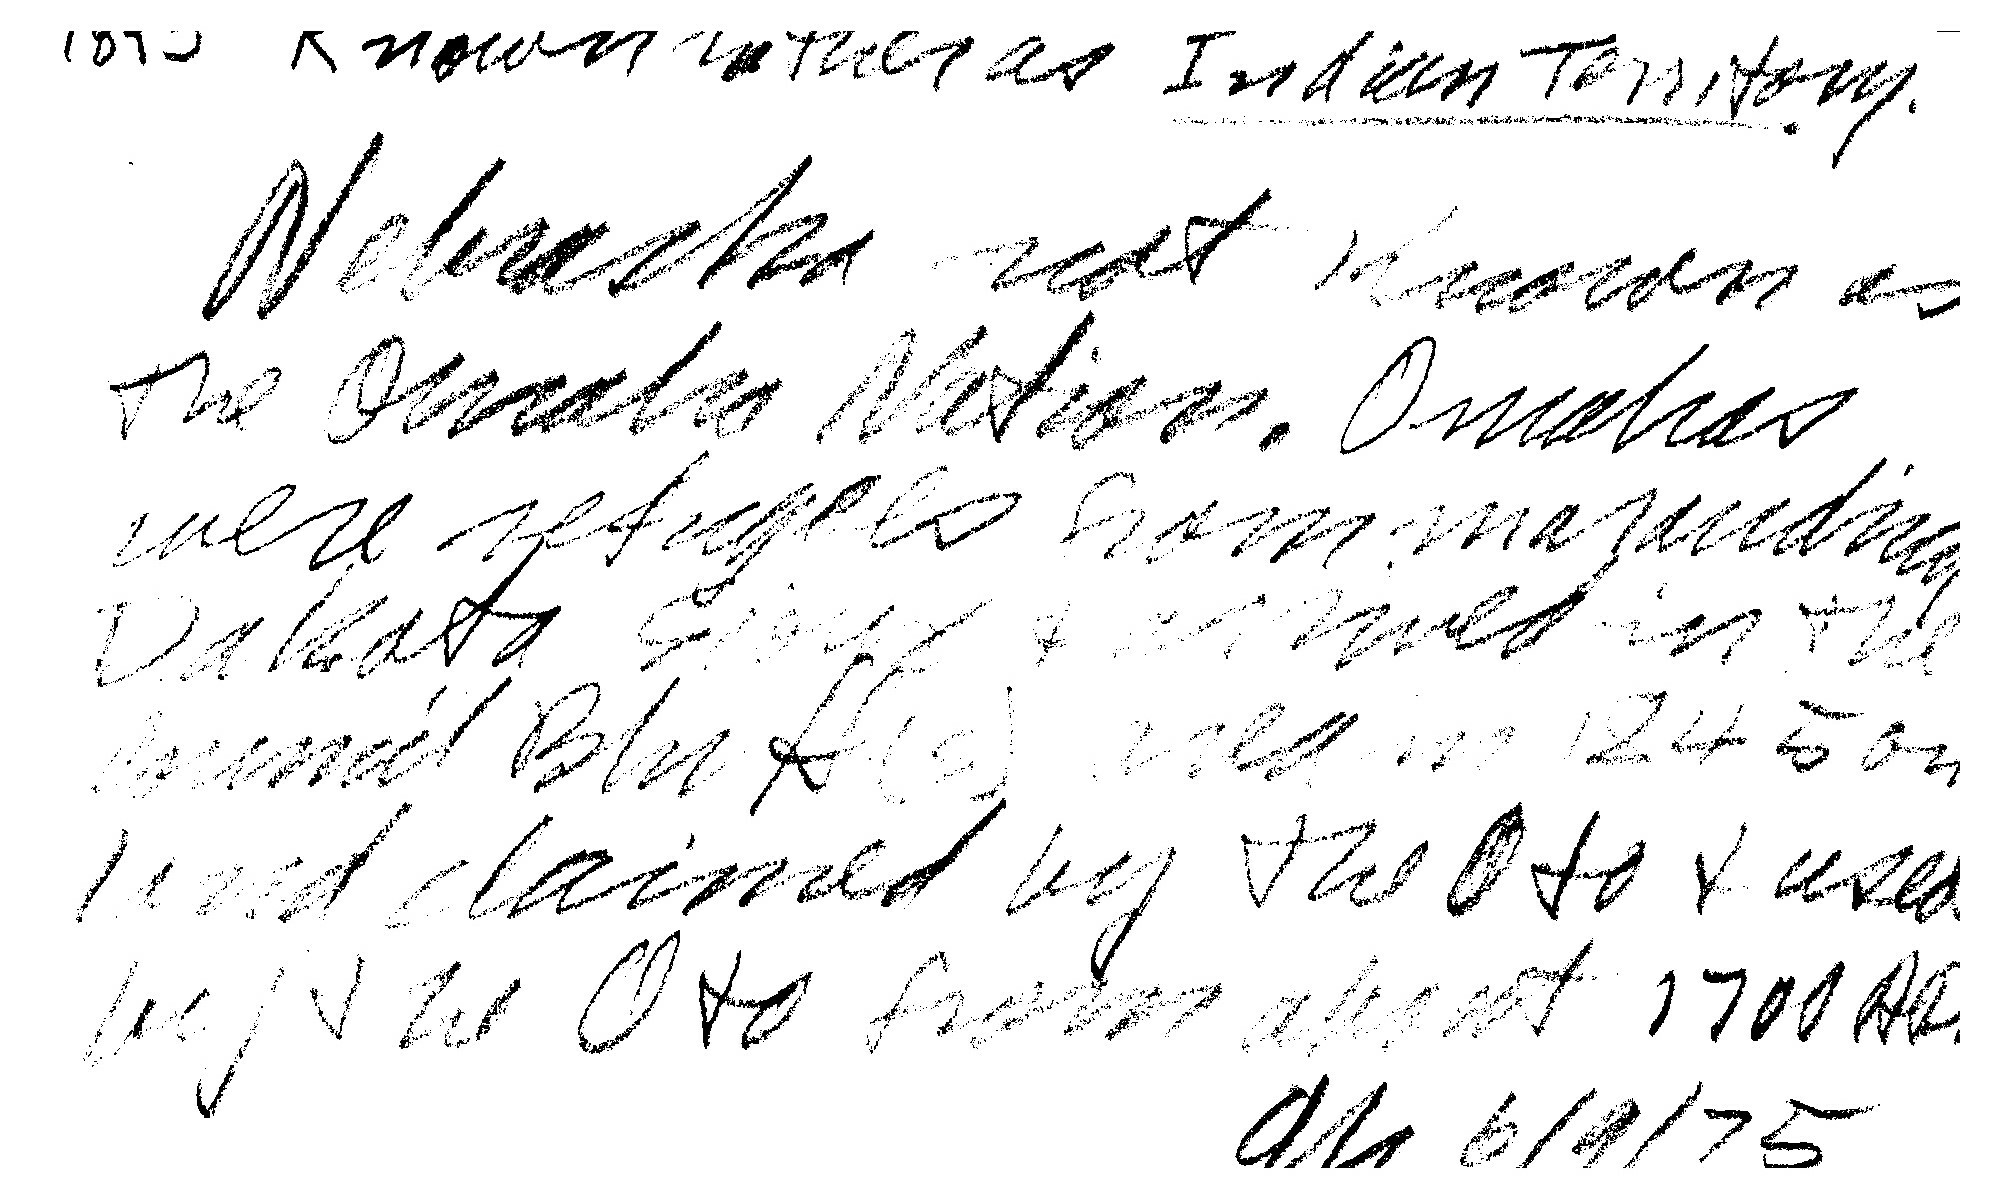 Known rather as Indian Territory.
Nebraska not known as
the Omaha Nation. Omahas
were refugees from marauding
Dakota Sioux & arrived in the
Council Bluff(s) area in 1845 on
land claimed by the Oto & used
by the Oto from about 1700 AD.
6/9/75